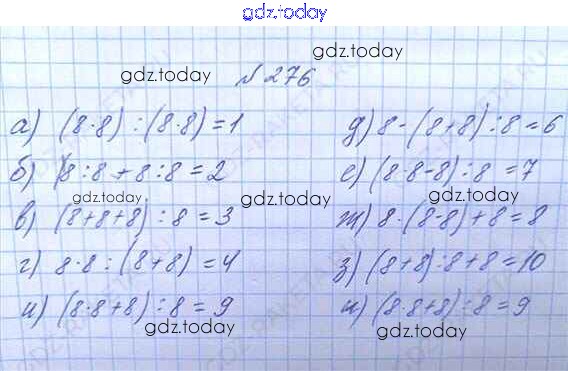 gdz.today
gdz.today
gdz.today
№ 276
а) (8·8) : (8·8) = 1
д) 8 - (8+8) : 8 = 6
б) 8 : 8 + 8 : 8 = 2
е) (8·8-8) : 8 = 7
gdz.today
gdz.today
gdz.today
в) (8+8+8) : 8 = 3
ж) 8 · (8-8) + 8 = 8
г) 8·8 : (8+8) = 4
з) (8+8) : 8 + 8 = 10
и) (8·8+8) : 8 = 9
и) (8·8+8) : 8 = 9
gdz.today
gdz.today